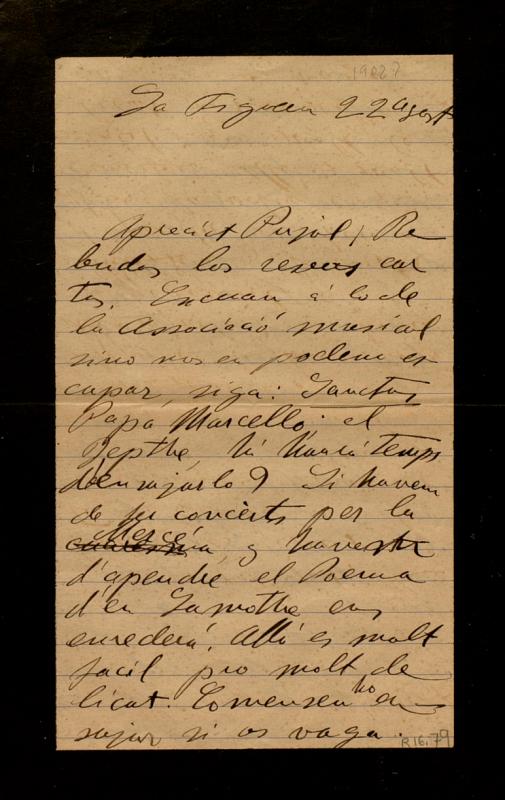 190??
La Figuera 22 agost
Apreciat Pujol, Re
budas las sevas car
tas. Encuan á lo de
la Associació musical
sino nos en podem es
capar, siga: Sanctus
Papa Marcello; el
Jepthe, hi haurá temps
d'ensajarlo? Si havem
de fer concèrts per la
Mercé
y haventse
d'apendre el Poema
d'en Lamothe ens
enrederá. Allí es molt
facil pro molt de
licat. Comensen ho en
sajar si os vaga.
R16.79